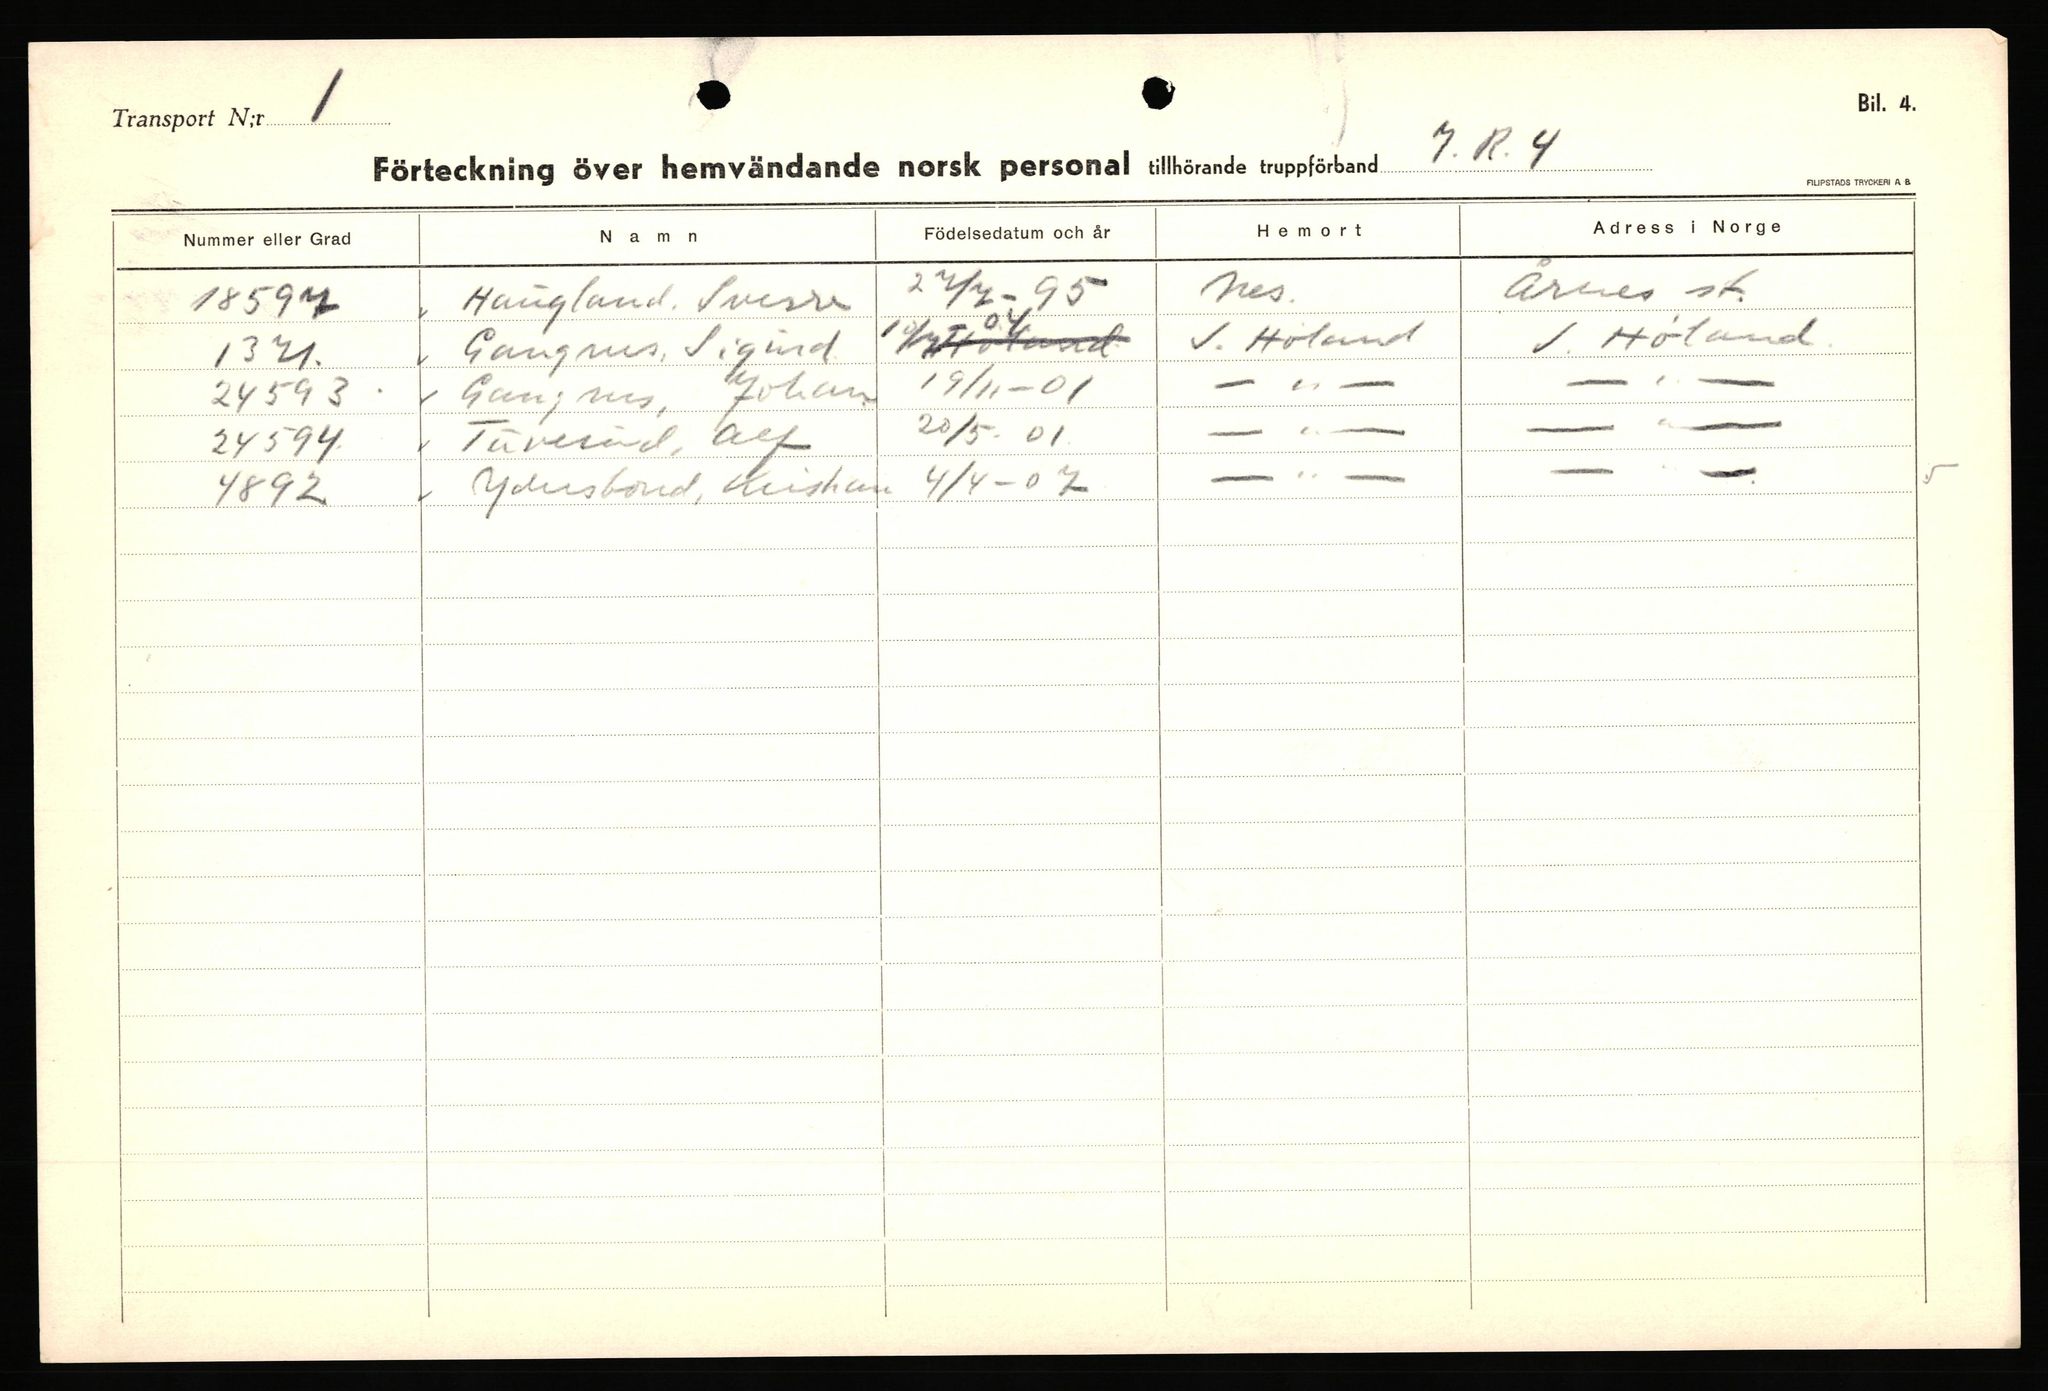 Transport N;r 1
Bil. 4.
Förteckning över hemvändande norsk personal tillhörande truppförband J. R. 4
FILIPSTADS TRYCKERI A B.
Nummer eller Grad Namn Födelsedatum och år Hemort Adress i Norge
18597 Haugland. Sverre 27/7 - 95 Nes. Årnes st.
1371. Gangnes, Sigurd 10/7 04 S. Høland S. Høland.
24593 Gangnes, Johan 19/11 - 01 — " — — " —
24594. Alf 20/5 - 01. — " — — " —
4892 Kristian 4/4 - 07 — " — — " —.
5